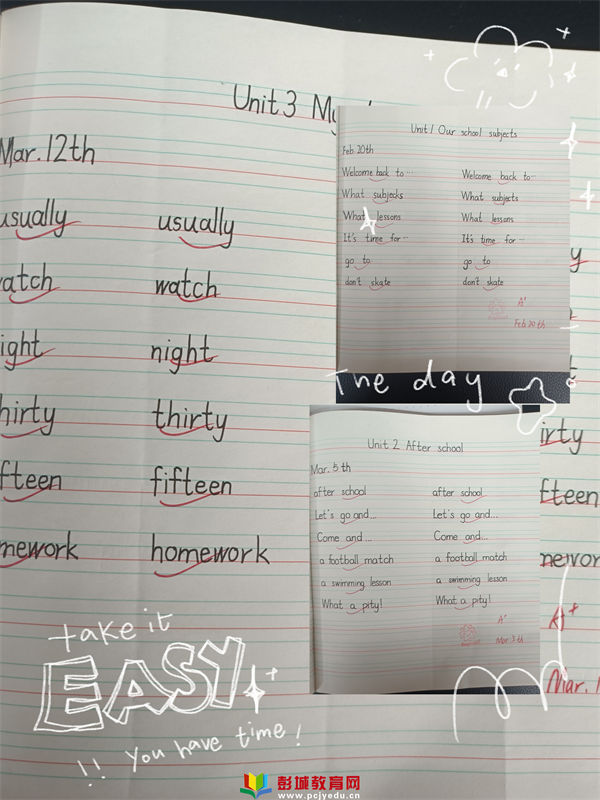 Unit 3 My
Mar. 12th
usually usually
watch watch
night night
thirty thirty
fifteen fifteen
homework homework
Unit 1 Our school subjects
Feb 20th
Welcome back to… Welcome back to…
What subjects What subjects
What lessons What lessons
It's time for… It's time for…
go to go to
don't skate don't skate
A+
Feb 20th
The day
Unit 2 After school
Mar. 5th
after school after school
Let's go and... Let's go and...
Come and... Come and...
a football match a football match
a swimming lesson a swimming lesson
What a pity! What a pity!
A+
Mar 5th
irty
fteen
mewor
A+
Mar. 1
take it
EASY
!! You have time!
彭城教育网
www.pcjyedu.cn